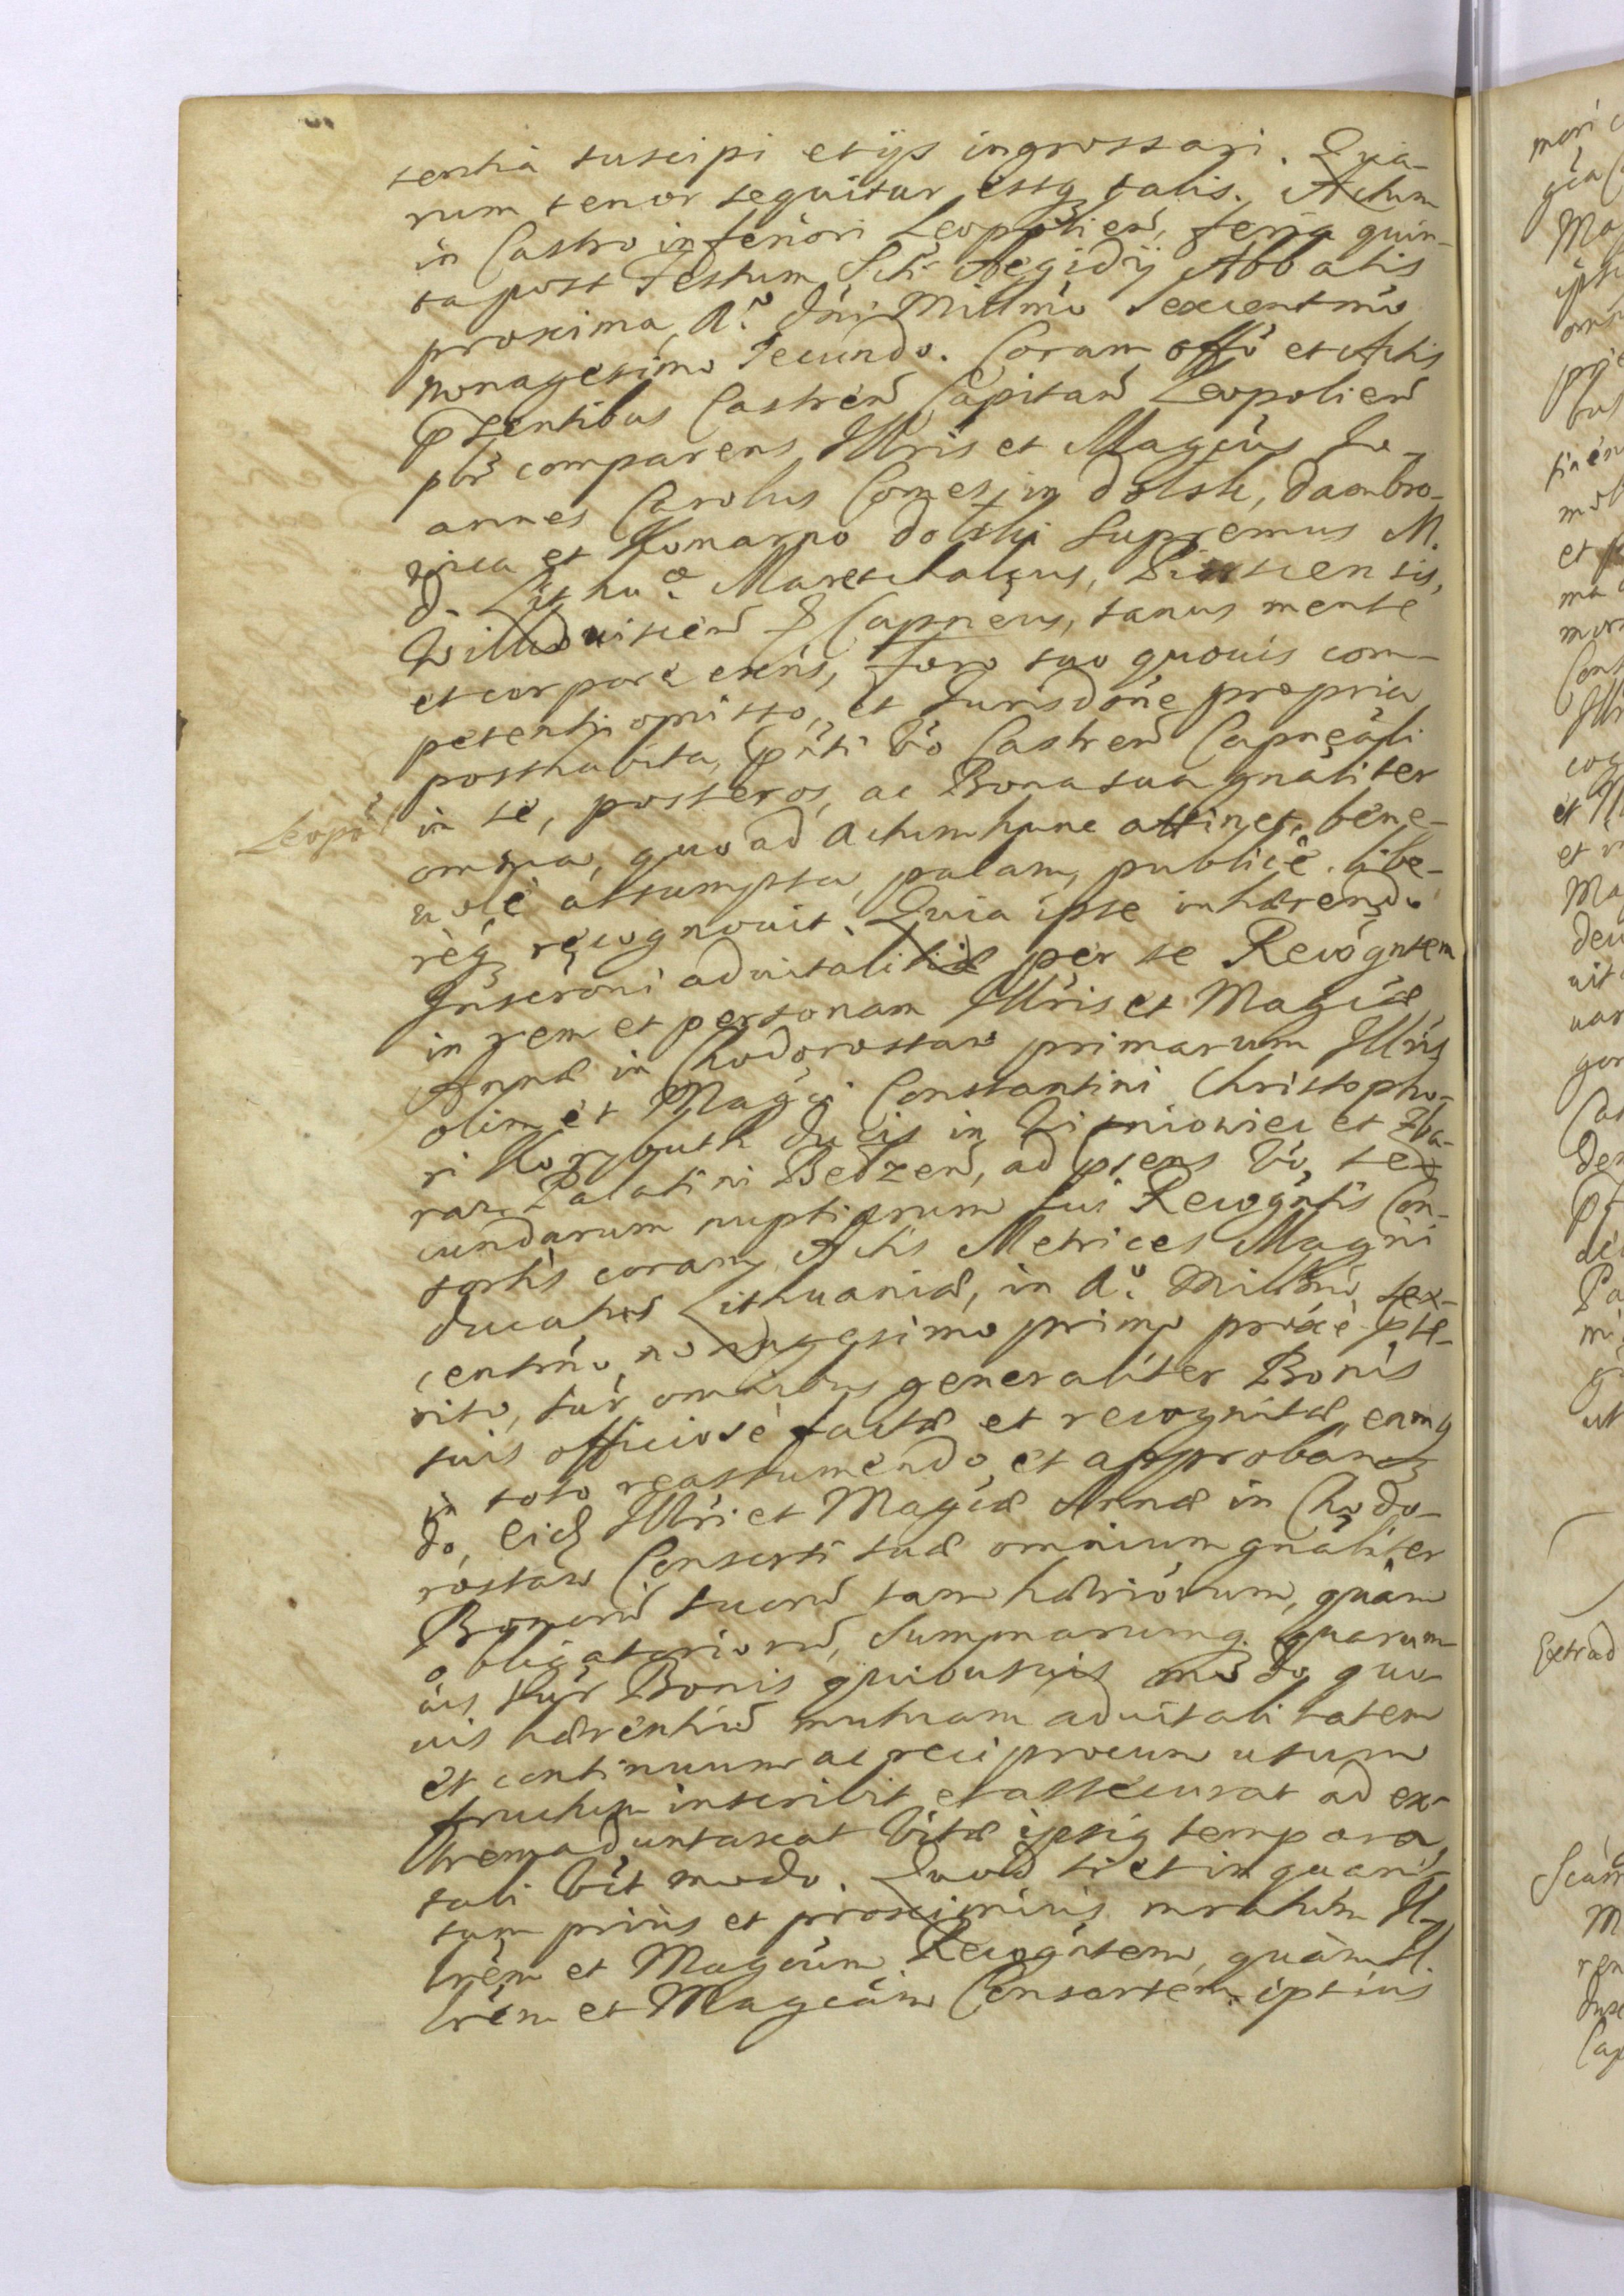 tentia suscipi et ijs ingrossari. Qua-
rum tenor sequitur estq talis. Actum
in Castro inferiori Leopolien, feria quin-
ta post Festum Scti Aegidij Abbatis
proxima, Ao Dni Millmo sexcentmo
nonagesimo secundo. Coram offo et Actis
psentibus Castren Capitan Leopolien
plr comparens Illris et Magcus Jo-
annes Carolus Comes in Dolsk, Dąmbro-
wica et Komarno Dolski Supremus M.
D. Lithu. Mareschalcus, Pinscensis,
Capneus, sanus mente
et corpore exns, foro suo quouis com-
petenti omisso, et Jurisdone propria
posthabita, pnti vo Castren Capneali
Leopo
in se, posteros, ac Bona sua gnaliter
omnia, quo ad Actum hunc attinet, bene-
uole assumpta, palam, publice, libe-
req recognouit. Quia ipse inhærendo
Inscroni aduitalitiæ per se Recogntem
in rem et personam Illris et Magcæ
Annæ in Chodorostaw primarum Illris
olim et Magci Constantini Christopho-
ri Korybuth Ducis in Wisniowiec et Zba-
raz Palatini Bedzen, ad psens vo, se-
cundarum nuptiarum sui Recogntis Con-
sortis coram Actis Metrices Magni
Ducatus Lithuaniæ, in Ao Millmo sex-
centmo nonagesimo primo proxe pte-
rito, sup omnibus generaliter Bonis
suis officiose factæ et recognitæ, eamq
in toto reassumendo et approban-
do, Eid Illri et Magcæ Annæ in Chodo-
rostaw Consorti suæ omnium gnaliter
Bonorum suorum tam hætriorum, quam
obligatoriorum, Summarumq quarum-
uis sup Bonis quibusuis modo quo-
uis hærentium mutuam aduitalitatem
et continuum ac reciprocum usum
fructum inscribit et assecurat ad ex-
trema duntaxat vitæ ipsiq tempora,
tali vit modo. Quod si et in quan-
tum prius et proximius mrahtr Il-
lrem et Magcum Recogntem, quam Il-
lrem et Magcam Consortem ipsius